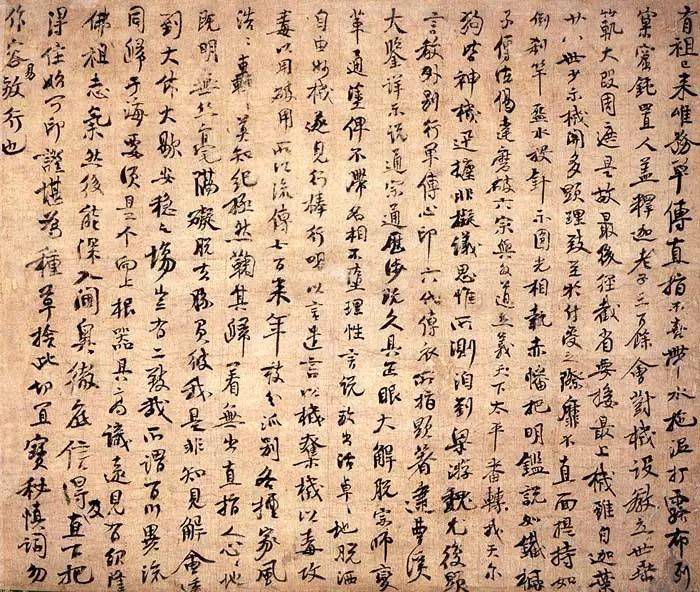 有祖已来唯務单傳直指不喜帶水拖泥打露布列
窠窟鈍置人盖釋迦老子三百餘會對機設教立世垂
範大段周遮是故最後徑截省要接最上機雖自迦葉
廿八世少示機關多顯理致至於付受之際靡不直面提持如
倒刹竿盋水投針示圓光相執赤幡把明鑑説如鐵橛
子傳法偈達磨破六宗與外道立義天下太平番轉我天尔
狗皆神機迅捷非擬議思惟所測洎到梁游魏尤復顯
言教外別行单傳心印六代傳衣所指顯著逮曹溪
大鑒詳示説通宗通歷涉既久具正眼大解脱宗師變
革通塗俾不滯名相不墮理性言説放出活卓〻地脱洒
自由妙機遂見行棒行喝以言遣言以機奪機以毒攻
毒以用破用所以流傳七百来年枝分派別各擅家風
浩〻轟〻莫知紀極然鞫其歸著無出直指人心〻地
既明無絲毫隔礙脱去勝負彼我是非知見解會透
到大休大歇安穩之場豈有二致哉所謂百川異流
同歸于海要須是个向上根器具高識遠見有紹隆
佛祖志氣然後能深入閫奧徹底信得及直下把
得住始可印證堪為種草捨此切宜寶秘慎詞勿
作容易放行也